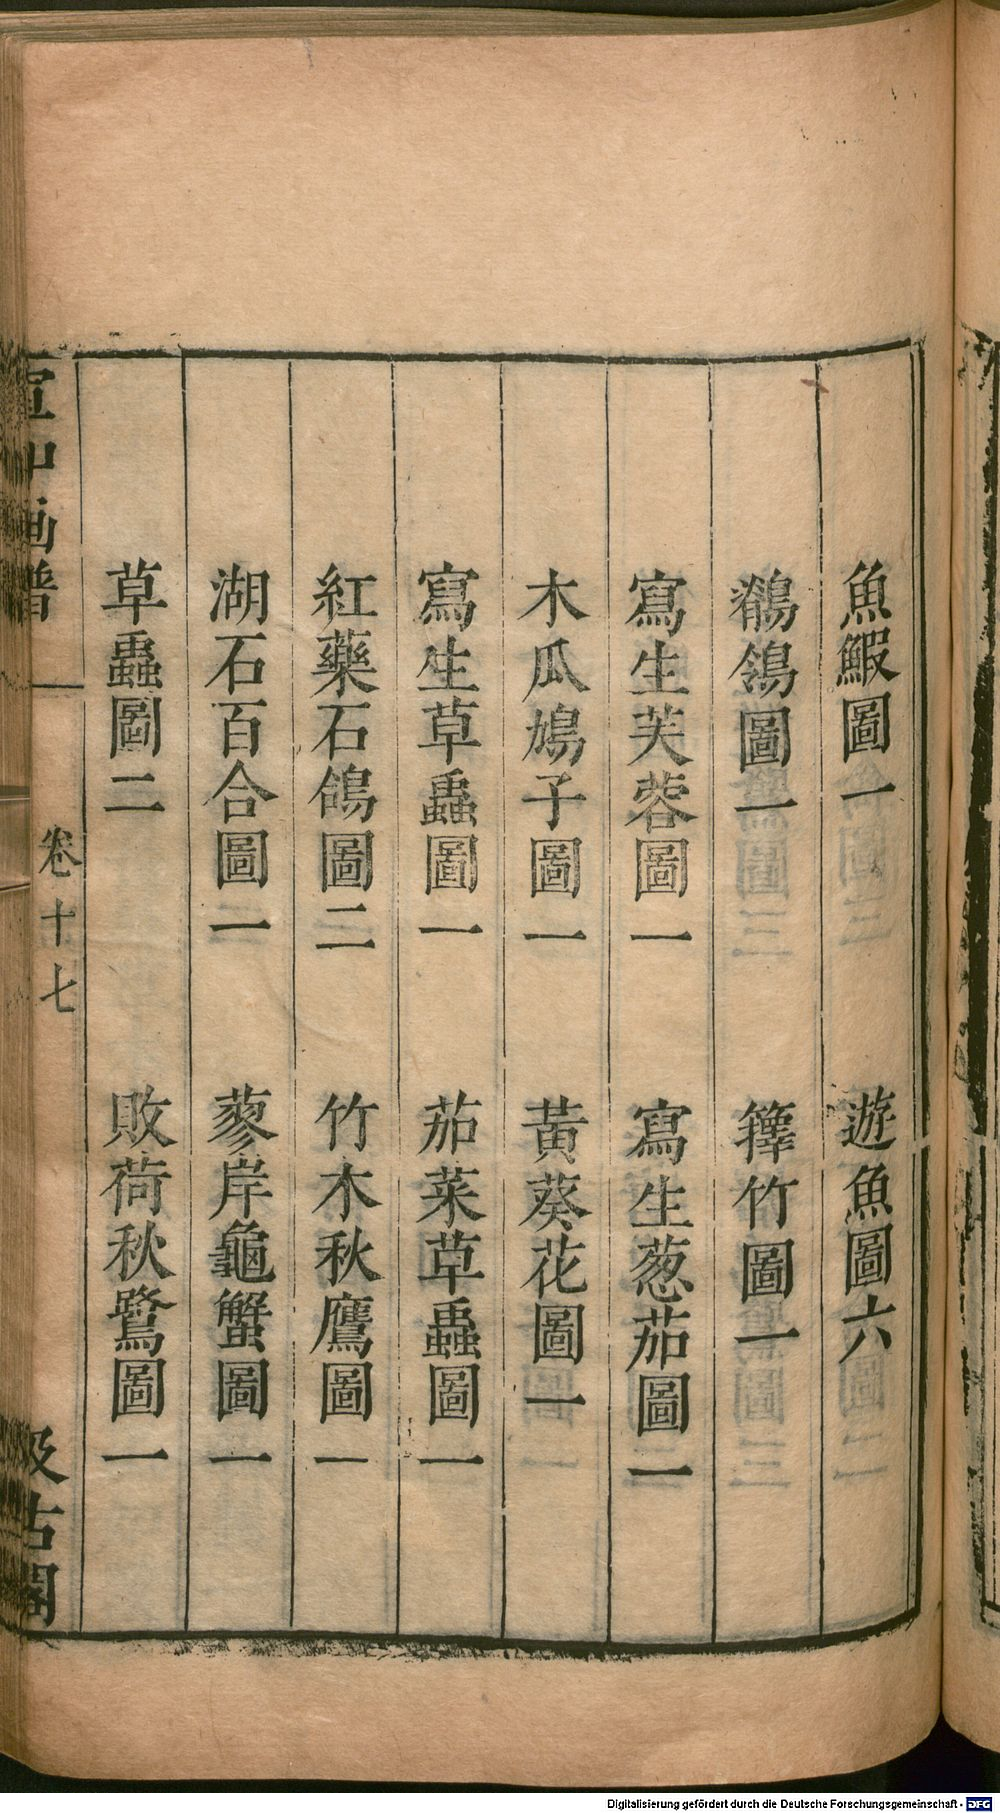 魚鰕圖一 遊魚圖六
鶺鴒圖一 籜竹圖一
寫生芙蓉圖一 寫生葱茄圖一
木瓜鳩子圖一 黃葵花圖一
寫生草蟲圖一 茄菜草蟲圖一
紅藥石鴿圖二 竹木秋鷹圖一
湖石百合圖一 蓼岸龜蟹圖一
草蟲圖二 敗荷秋鷺圖一
宣和画譜 卷十七 汲古閣
Digitalisierung gefördert durch die Deutsche Forschungsgemeinschaft - DFG